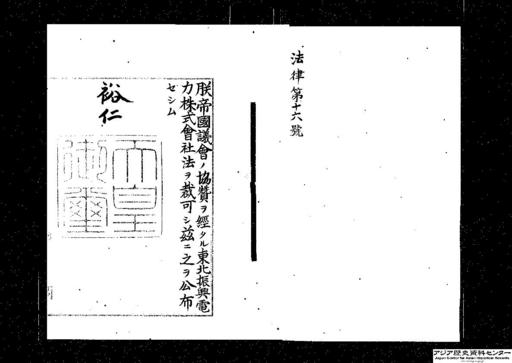 法律第十六號
朕帝國議會ノ協賛ヲ經タル東北振興電
力株式會社法ヲ裁可シ茲ニ之ヲ公布
セシム
裕仁
天皇
御璽
アジア歴史資料センター
Japan Center for Asian Historical Records